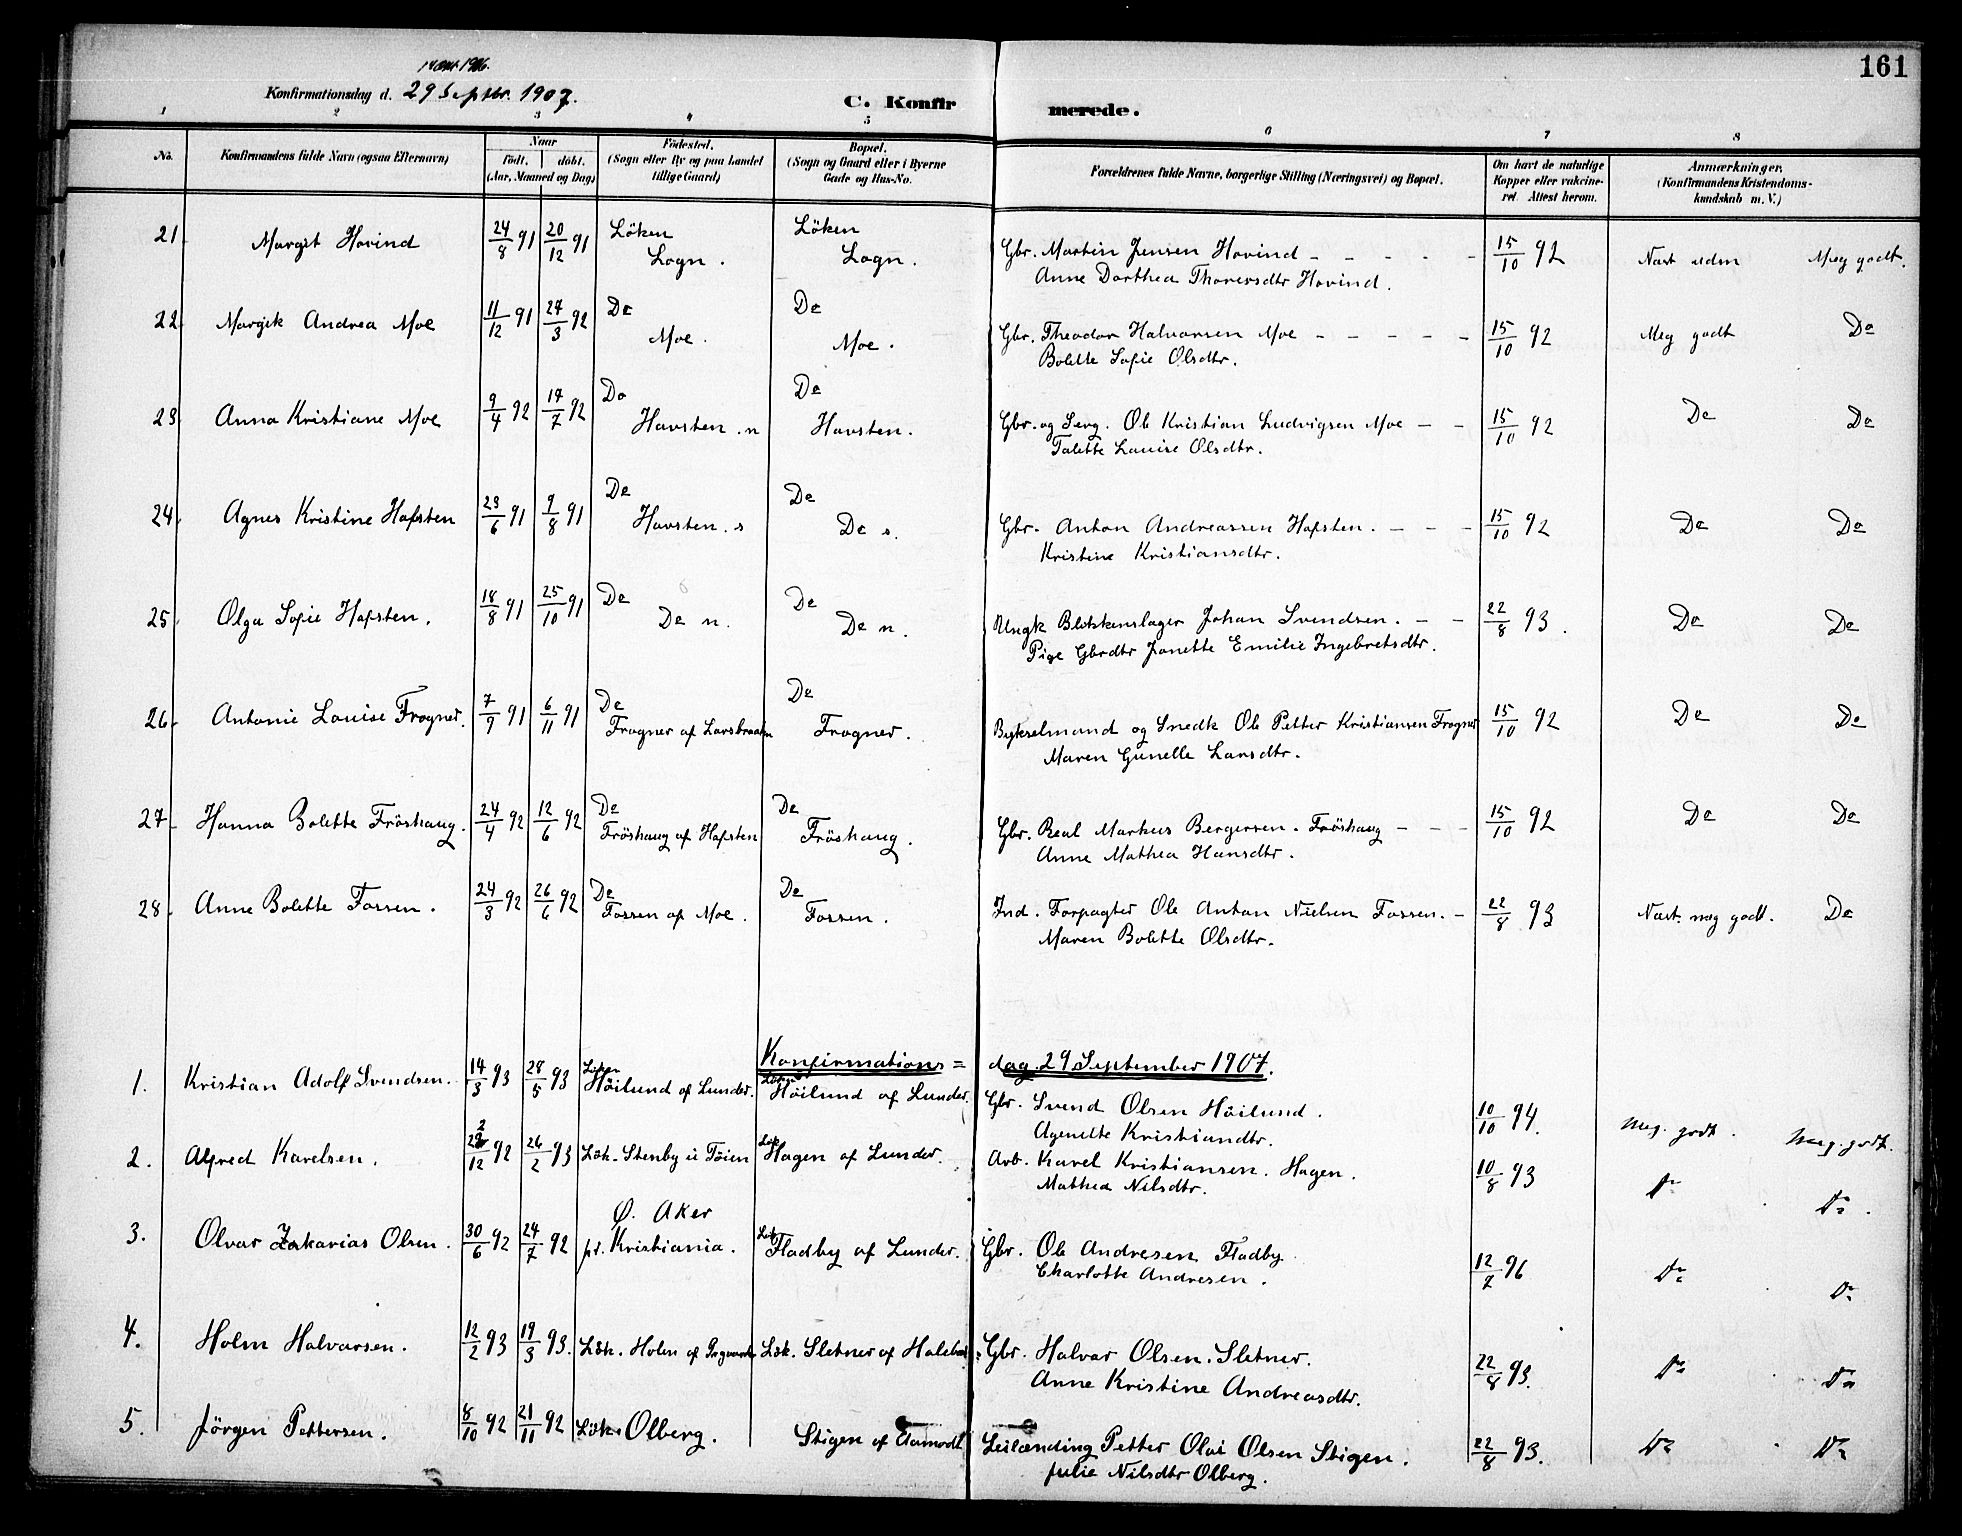 161
1906.
Konfirmationsdag d. 29 Septbr. 1907.
C. Konfirmerede.
1 2 3 4 5 6 7 8
No. Konfirmandens fulde Navn (ogsaa Efternavn) Naar født. døbt. (Aar, Maaned og Dag) Fødested. (Sogn eller By og paa Landet tillige Gaard) Bopæl. (Sogn og Gaard eller i Byerne Gade og Hus-No. Forældrenes fulde Navne, borgerlige Stilling (Næringsvei) og Bopæl. Om havt de naturlige Kopper eller vakcineret Attest herom. Anmærkninger, (Konfirmandens Kristendomskundskab m. V.)
21. Margit Hovind 24/8 91 20/12 91 Löken Logn. Löken Logn. Gbr. Martin Jensen Hovind – – – – –  15/10 92 Næst udm Meg godt.
Anne Dorthea Thoversdtr Hovind.
22. Margit Andrea Moe 11/12 91 27/3 92 Do Moe. Do Moe. Gbr. Theodor Halvorsen Moe – – – – – 15/10 92 Meg godt Do
Bolette Sofie Olsdtr.
23. Anna Kristiane Moe 9/4 92 17/7 92 Do Havsten. n Do Havsten. Gbr. og Serg. Ole Kristian Ludvigsen Moe – – 15/10 92 Do Do
Talette Louise Olsdtr.
24. Agnes Kristine Hafsten 23/6 91 9/8 91 Do Havsten. s Do Do s. Gbr. Anton Andreassen Hafsten. – – – 15/10 92 Do Do
Kristine Kristiansdtr.
25. Olga Sofie Hafsten. 18/8 91 25/10 91 Do Do n. Do Do n. Ungk Blikkenslager Johan Svendsen. – – 22/8 93. Do Do
Pige Gbrdtr Janette Emilie Ingebretsdtr.
26. Antonie Louise Frogner. 7/9 91 6/11 91 Do Frogner af Larsbraaten Do Frogner. Bygselmand og Snedk Ole Petter Kristiansen Frogner 15/10 92 Do Do
Maren Gunelle Larsdtr.
27. Hanna Bolette Fröshaug. 24/4 92 12/6 92 Do Fröshaug af Hafsten Do Fröshaug. Gbr. Real Markus Bergersen. Fröshaug – – – 15/10 92 Do Do
Anne Mathea Hansdtr.
28. Anne Bolette Fossen. 24/3 92 26/6 92 Do Fossen af Moe. Do Fossen. Ind. Forpagter Ole Anton Nielsen Fossen. – 22/8 93 Næst. meg godt. Do
Maren Bolette Olsdtr.
Konfirmations= dag. 29 September 1907.
1. Kristian Adolf Svendsen. 14/3 93 28/5 93 Löken Höilund af Lunder. Löken Höilund af Lunder. Gbr. Svend Olsen Höilund. 10/10 94. Meg. godt. Meg. godt.
Agenette Kristiandtr.
2. Alfred Karelsen. /12 92 26/2 93 Lök. Stenby u Töien Lök Hagen af Lunder. Arb. Karel Kristiansen. Hagen. 10/8 93 Do Do.
Mathea Nilsdtr.
3. Olvar Zakarias Olsen. 30/6 92 24/7 92 Ø. Aker pr. Kristiania. Lök Fladby af Lunder. Gbr. Ole Andresen Fladby 12/7 96 Do Do
Charlotte Andresen.
4. Holm Halvorsen. 12/2 93 19/3 93. Lök. Holm af Lök. Sletner af Gbr. Halvor Olsen. Sletner. 22/8 93. Do Do
Anne Kristine Andreasdtr.
5. Jörgen Pettersen. 8/10 92 21/11 92 Lök. Olberg. Stigen af Leilænding Petter Olai Olsen Stigen. 22/8 93. Do Do
Julie Nilsdtr Olberg.